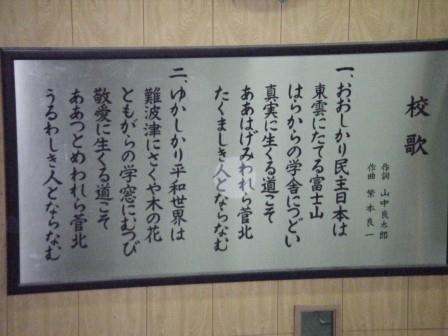 校歌
作詞 山中良太郎
作曲 繁本良一
一、おおしかり民主日本は
東雲にたてる富士山
はらからの学舎につどい
真実に生くる道こそ
ああはげみわれら菅北
たくましき人とならなむ
二、ゆかしかり平和世界は
難波津にさくや木の花
ともがらの学窓にむつび
敬愛に生くる道こそ
ああつとめわれら菅北
うるわしき人とならなむ